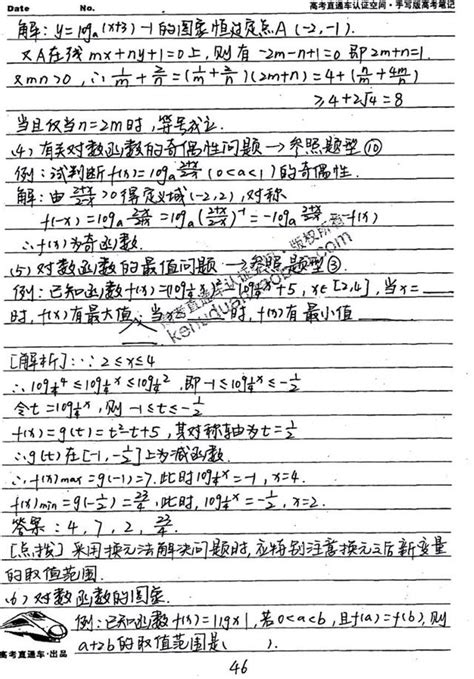 Date No. 高考直通车认证空间·手写版高考笔记
解:y=logₐ(x+3)-1的图象恒过定点A(-2,-1).
又A在线mx+ny+1=0上,则有-2m-n+1=0即2m+n=1.
又mn>0,∴1/m+2/n=(1/m+2/n)(2m+n)=4+(n/m+4m/n)
≥4+2√4=8
当且仅当n=2m时,等号成立.
(4)有关对数函数的奇偶性问题→参照题型⑩
例:试判断f(x)=logₐ (0<a<1)的奇偶性.
解:由 >0得定义域(-2,2),对称
f(-x)=logₐ =logₐ( )⁻¹=-logₐ =-f(x)
∴f(x)为奇函数.
(5)对数函数的最值问题→参照题型③.
例:已知函数f(x)= +5,x∈[2,4],当x=
时,f(x)有最大值 ;当x= 时,f(x)有最小值
[解析]:∵2≤x≤4
∴log¼4≤log¼x≤log¼2,即-1≤log¼x≤-1/2
令t=log¼x,则-1≤t≤-1/2
f(x)=g(t)=t²-t+5,其对称轴为t=1/2
∴g(t)在[-1,-1/2]上为减函数.
∴f(x)max=g(-1)=7.此时log¼x=-1,x=4.
f(x)min=g(-1/2)=23/4.此时,log¼x=-1/2,x=2.
答案:4,7,2,23/4.
[点拨]采用换元法解决问题时,应特别注意换元之后新变量
的取值范围.
(6)对数函数的图象.
例:已知函数f(x)=|lgx|,若0<a<b,且f(a)=f(b),则
a+2b的取值范围是( ).
高考直通车·出品
46